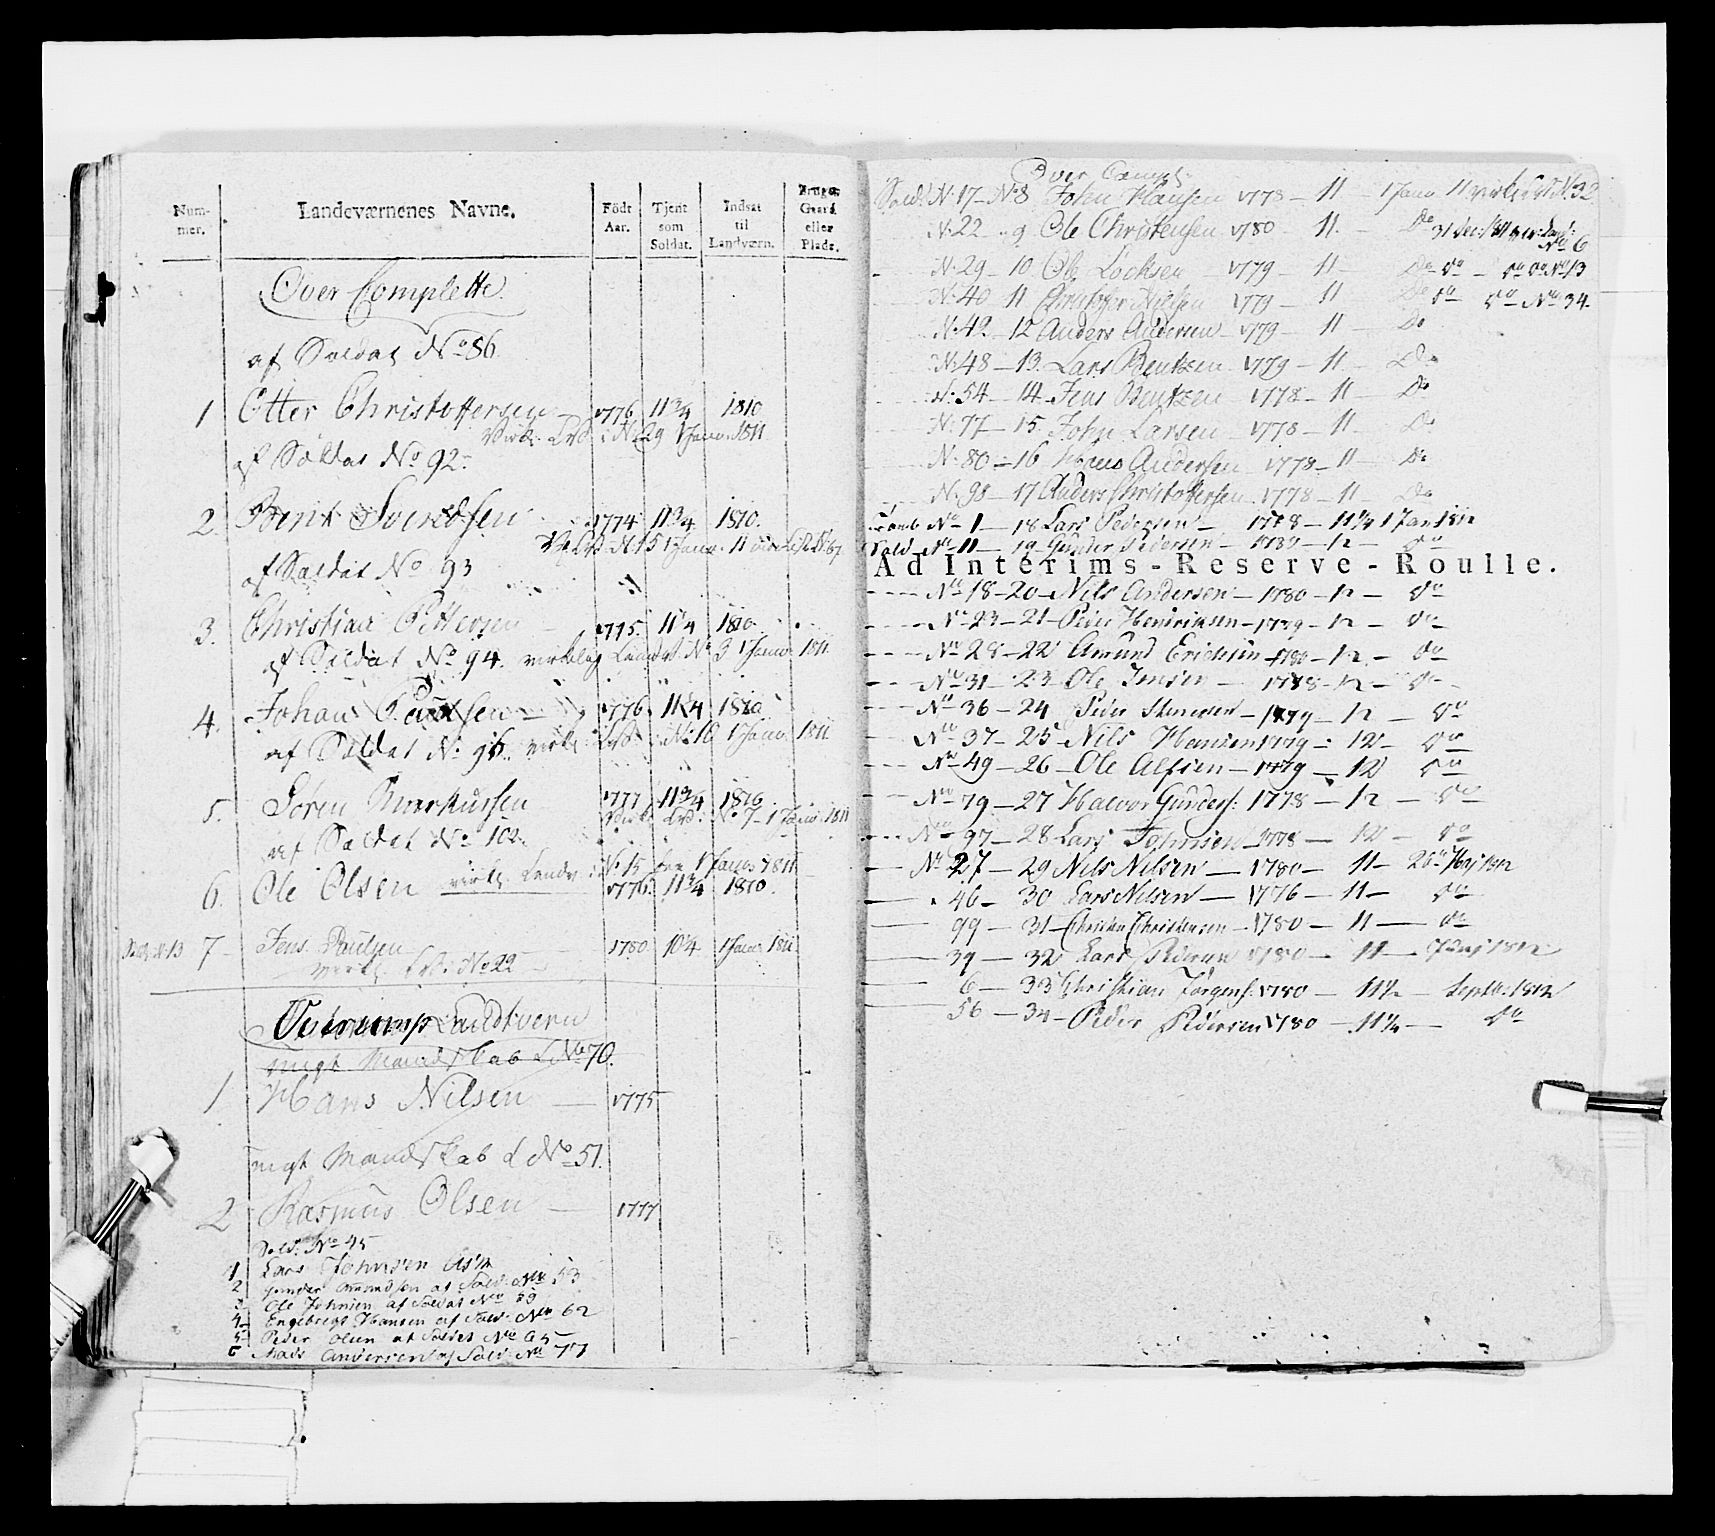 Num-
mer.
Landeværnenes Navne.
Födt
Aar.
Tjent
som
Soldat.
Indsat
til
Landværn.
Bruger
Gaard
eller
Plads.
Over Complette
af Soldat No 86
1 Otter Christoffersen 1776 11 3/4 1810
Virk. Lvd. i No 29 1 Janr. 1811
af Soldat No 92
2. Bent Svendsen 1774 11 3/4 1810.
af Soldat No 93
3. Christian Pettersen 1775. 11 1/4 1810
af Soldat No 94. virkelig Landv. No 3 1 Janr. 1811
4. Johan 1776 11 1/4 1810
af Soldat No 96. virk. Lvd. No 10 1 Janr. 1811
5. Sören Markussen 1777 11 3/4 1810
Virk. Lvd. No 7 1 Janr. 1811
af Soldat No 102.
virk. Landv. No 15 fra 1 Janr. 1811
6. Ole Olsen 1776. 11 3/4 1810.
Sold. N. 13 7 Jens Paulsen 1780 10 1/4 1 Janr. 1811
virk. Lvd. No 22
Landtvern
Mandskab L No 70.
1 Hans Nilsen — 1775
Mandskab L No 51.
2 Rasmus Olsen — 1777
Sold. No 45
1 Lars Johnsen
2 Gunder Amundsen af Sold. No 53
3 Ole Johnsen af Soldat No 59
4 Engebregt Hansen af Sold. No 62
5 Peder Olsen af Soldat No 65
6 Mads Andersen af Sold. No 77
Over Compl.
Sold. N. 17 — No 8 John Hansen 1778 — 11 — 1 Janr. 11 virk. Lvd. N. 32
N. 22 „ 9 Ole Christensen 1780 — 11. — Do 31 Dec. 1811 No 6
N. 29 — 10 Ole — 1779 — 11 — Do do — do do No 13
N. 40 11 Christoffer Nielsen 1779 — 11 Do do do No 34.
N. 42 — 12 Anders Andersen 1779 — 11 — Do
N. 48 — 13. Lars Bentzen 1779 — 11 — Do
N. 54 — 14 Jens Bentzen 1778 — 11 — Do
N. 77 — 15 John Larsen 1778 — 11 — Do
N. 80 — 16 Hans Andersen 1778 — 11 — Do
N. 98 — 17 Anders Christoffersen 1778 — 11 — Do
No 1 — 18 Lars Pedersen — 1778 — 11 1/4 1 Jan 1812
Sold No 11 — 19 Gunder Pedersen — — 12 — do
Ad Interims-Reserve-Roulle.
No 18 — 20 — Nils Andersen — 1780 — 12 — do
No 23 — 21 — Peder Henriksen — 1779 — 12 — do
No 28 — 22 Amund Erichsen — 1780 — 12 — do
No 31 — 23 Ole Jensen — 1778 — 12 — do
No 36 — 24 Peder — 1779 — 12 — do
No 37 — 25 — Nils Hansen 1779 — 12 — do
No 49 — 26 — Ole Alfsen — 1779 — 12 do
No 79 — 27 Halvor Gunders: 1778 — 12 — do
No 97 — 28 Lars Johnsen 1778 — 12 — do
No 27 — 29 Nils Nilsen — 1780 — 11 — 1812
46 — 30 Lars Nilsen — 1776 — 11 — do
99 — 31 — Christen Christensen — 1780 — 11 — do
39 — 32 Lars Pedersen 1780 — 11 — 1812
6 — 33 Christian Jörgens. 1780 — 11 1/2 — Septb. 1812
56 — 34 — Peder Pedersen 1780 — 11 1/2 — do